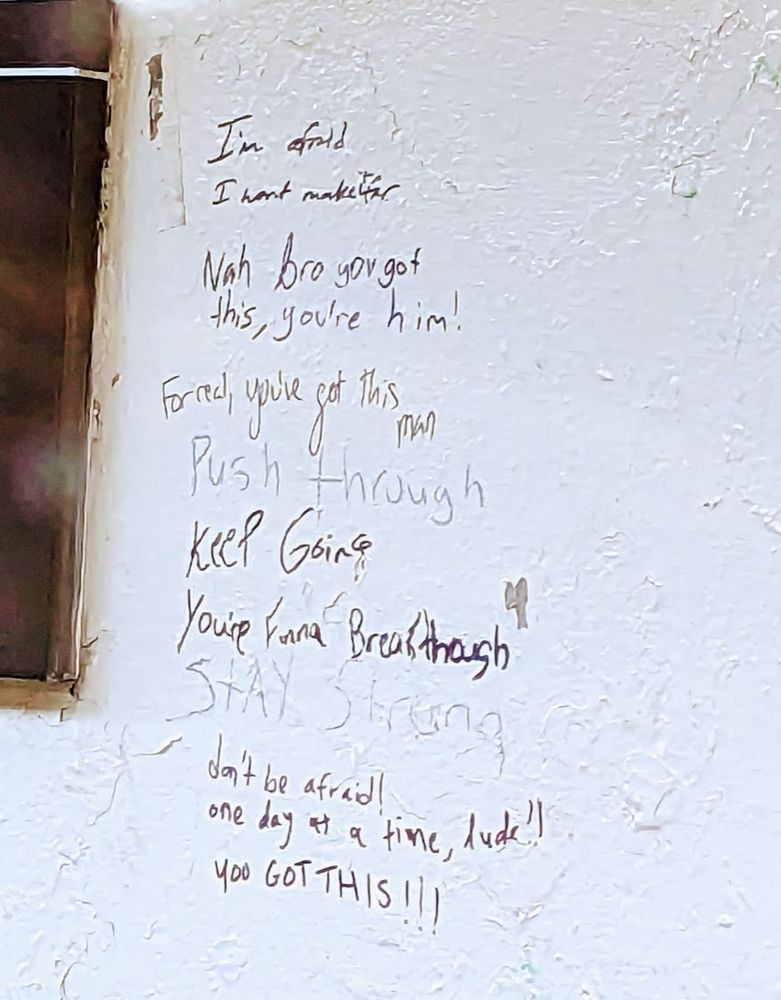 I'm afraid
I wont make it far
Nah Bro you got
this, you're him!
For real, you've got this
man
Push through
KEEP GoinG
You're Finna Breakthrough
STAY Strong
don't be afraid!
one day at a time, dude!!
YOU GOT THIS!!!